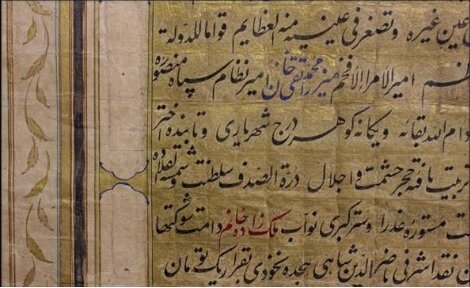 عين غيره و تصغر في عينيه العظايم قواما للدولة
امير الامراء الافخم ميرزا محمد تقي خان امير نظام سپاه منصوره
دام الله بقائه و يگانه گوهر درج شهرياري و تابنده اختر
تربيت يافته حجر حشمت و اجلال درة الصدف سلطنت و شمسة
مستوره عذرا و ستر كبري نواب ملك زاده خانم دامت شوكتها
نقد اشرفي ناصر الدين شاهي هجده نخودي تقرار يك تومان